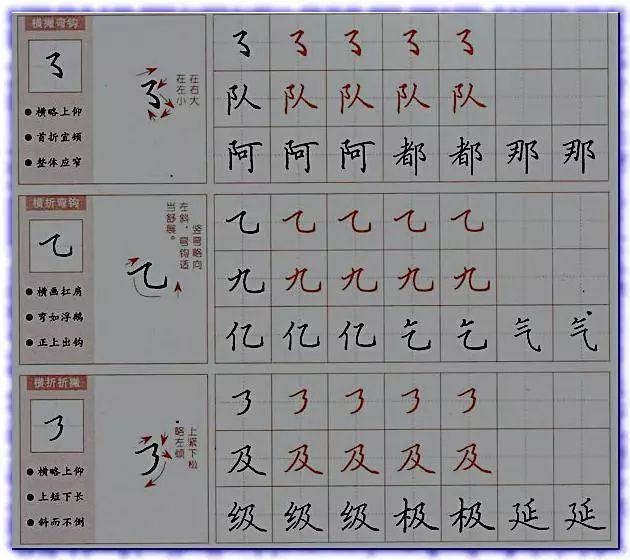 横撇弯钩
● 横略上仰
● 首折宜倾
● 整体应窄
队 队 队 队 队
阿 阿 阿 都 都 那 那
横折弯钩
乙
● 横画扛肩
● 弯如浮鹅
● 正上出钩
竖弯略向
左斜,弯钩适
当舒展。
乙
乙 乙 乙 乙 乙
九 九 九 九 九
亿 亿 亿 乞 乞 气 气
横折折撇
● 横略上仰
● 上短下长
● 斜而不倒
上紧下松
略左倾
及 及 及 及 及
级 级 级 极 极 延 延